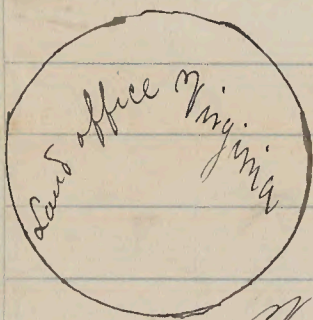 Land office Virginia